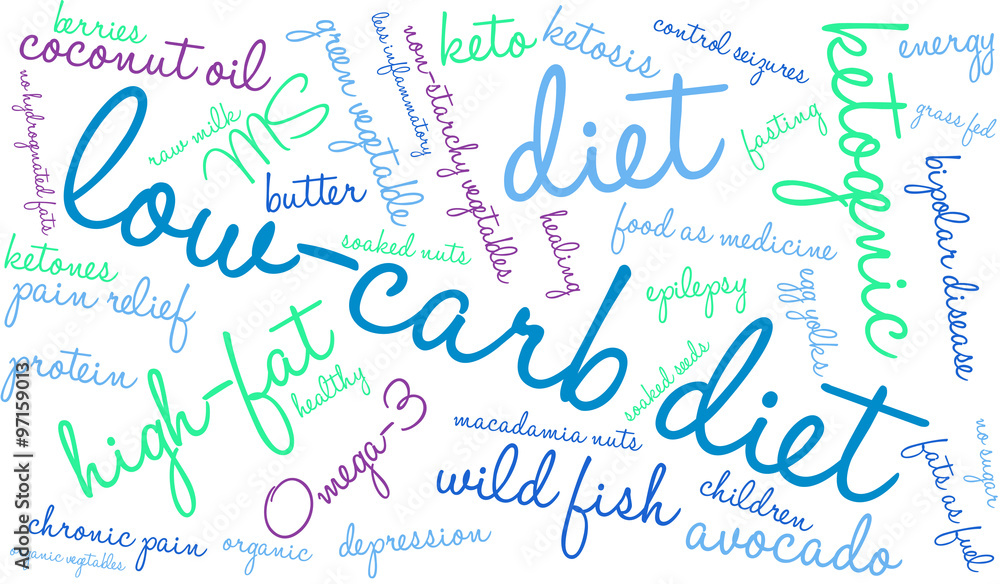 berries
coconut oil
no hydrognated fats
raw milk
MS
green vegetable
less inflammatory
non-starchy vegetables
keto
ketosis
control seizures
ketogenic
energy
grass fed
diet
fasting
butter
low-carb diet
soaked nuts
healing
food as medicine
bipolar disease
ketones
pain relief
epilepsy
egg yolks
protein
high-fat
healthy
Omega-3
soaked seeds
macadamia nuts
wild fish
children
avocado
fats as fuel
no sugar
chronic pain
organic vegetables
organic
depression
Adobe Stock | #97159013
Adobe Stock